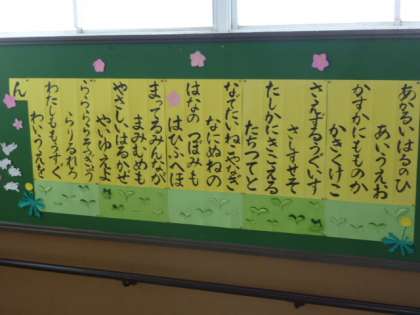 あかるい はるのひ
あいうえお
かすかにもものか
かきくけこ
さえずるうぐいす
さしすせそ
たしかにきこえる
たちつてと
ねこやなぎ
なにぬねの
はなの つぼみも
はひふへほ
まってるみんなが
まみむめも
やさしいはるかぜ
やいゆえよ
らりるれろ
わたしももうすぐ
わいうえを
ん